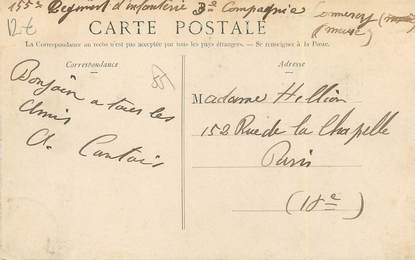 155e Regiment d'infanterie 3e Compagnie Commercy
(Meuse)
12€
CARTE POSTALE
La Correspondance au recto n'est pas acceptée par tous les pays étrangers. – Se renseigner à la Poste.
Correspondance
85
Bonjour a tous les
Amis
A.
Adresse
Madame Hellion
152 Rue de la Chapelle
Paris
(18e)